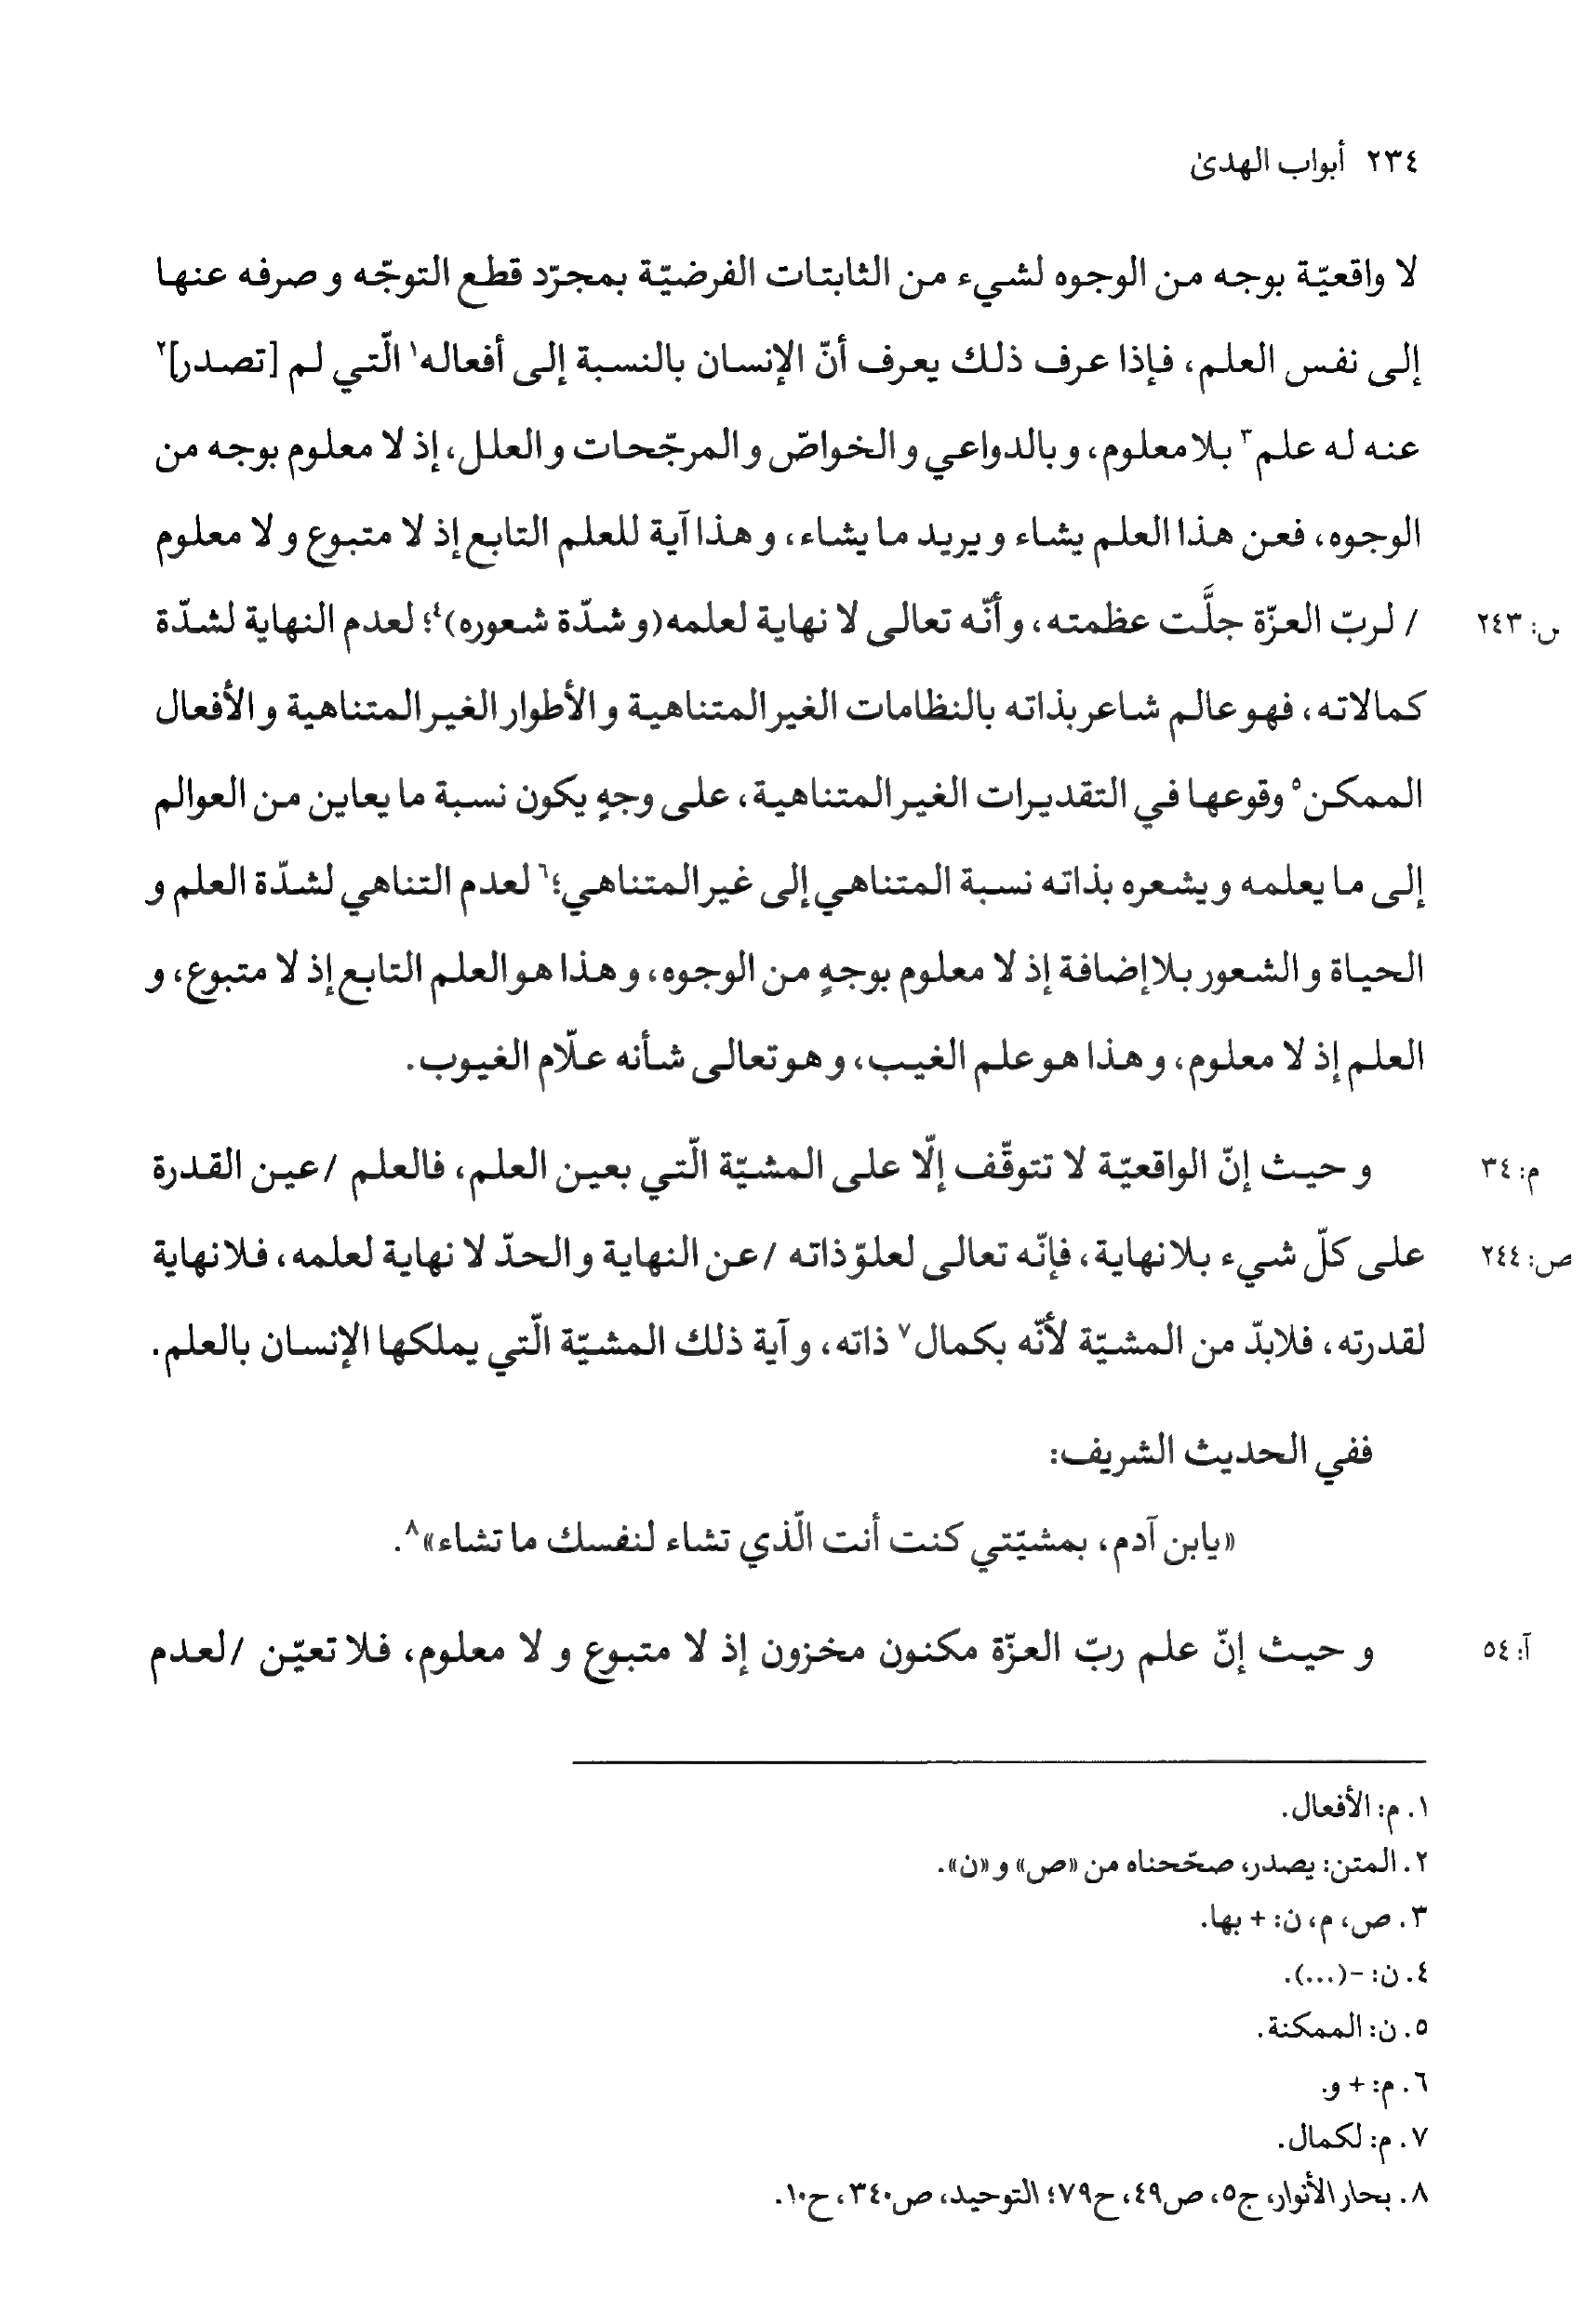 ٢٣٤ أبواب الهدىٰ
لا واقعيّة بوجه من الوجوه لشيء من الثابتات الفرضيّة بمجرّد قطع التوجّه و صرفه عنها
إلى نفس العلم، فإذا عرف ذلك يعرف أنّ الإنسان بالنسبة إلى أفعاله١ الّتي لم [تصدر]٢
عنه له علم٣ بلا معلوم، و بالدواعي و الخواصّ و المرجّحات و العلل، إذ لا معلوم بوجه من
الوجوه، فعن هذا العلم يشاء و يريد ما يشاء، و هذا آية للعلم التابع إذ لا متبوع و لا معلوم
ص: ٢٤٣ / لربّ العزّة جلَّت عظمته، و أنّه تعالى لا نهاية لعلمه (و شدّة شعوره)٤؛ لعدم النهاية لشدّة
كمالاته، فهو عالم شاعر بذاته بالنظامات الغير المتناهية و الأطوار الغير المتناهية و الأفعال
الممكن٥ وقوعها في التقديرات الغير المتناهية، على وجهٍ يكون نسبة ما يعاين من العوالم
إلى ما يعلمه و يشعره بذاته نسبة المتناهي إلى غير المتناهي؛٦ لعدم التناهي لشدّة العلم و
الحياة و الشعور بلا إضافة إذ لا معلوم بوجهٍ من الوجوه، و هذا هو العلم التابع إذ لا متبوع، و
العلم إذ لا معلوم، و هذا هو علم الغيب، و هو تعالى شأنه علّام الغيوب.
م: ٣٤ و حيث إنّ الواقعيّة لا تتوقّف إلّا على المشيّة الّتي بعين العلم، فالعلم / عين القدرة
ص: ٢٤٤ على كلّ شيء بلا نهاية، فإنّه تعالى لعلوّ ذاته / عن النهاية و الحدّ لا نهاية لعلمه، فلا نهاية
لقدرته، فلابدّ من المشيّة لأنّه بكمال٧ ذاته، و آية ذلك المشيّة الّتي يملكها الإنسان بالعلم.
ففي الحديث الشريف:
«يابن آدم، بمشيّتي كنت أنت الّذي تشاء لنفسك ما تشاء»٨.
آ: ٥٤ و حيث إنّ علم ربّ العزّة مكنون مخزون إذ لا متبوع و لا معلوم، فلا تعيّن / لعدم
١. م: الأفعال.
٢. المتن: يصدر، صحّحناه من «ص» و «ن».
٣. ص، م، ن: + بها.
٤. ن: -(...).
٥. ن: الممكنة.
٦. م: + و.
٧. م: لكمال.
٨. بحار الأنوار، ج٥، ص٤٩، ح٧٩؛ التوحيد، ص٣٤٠، ح١٠.